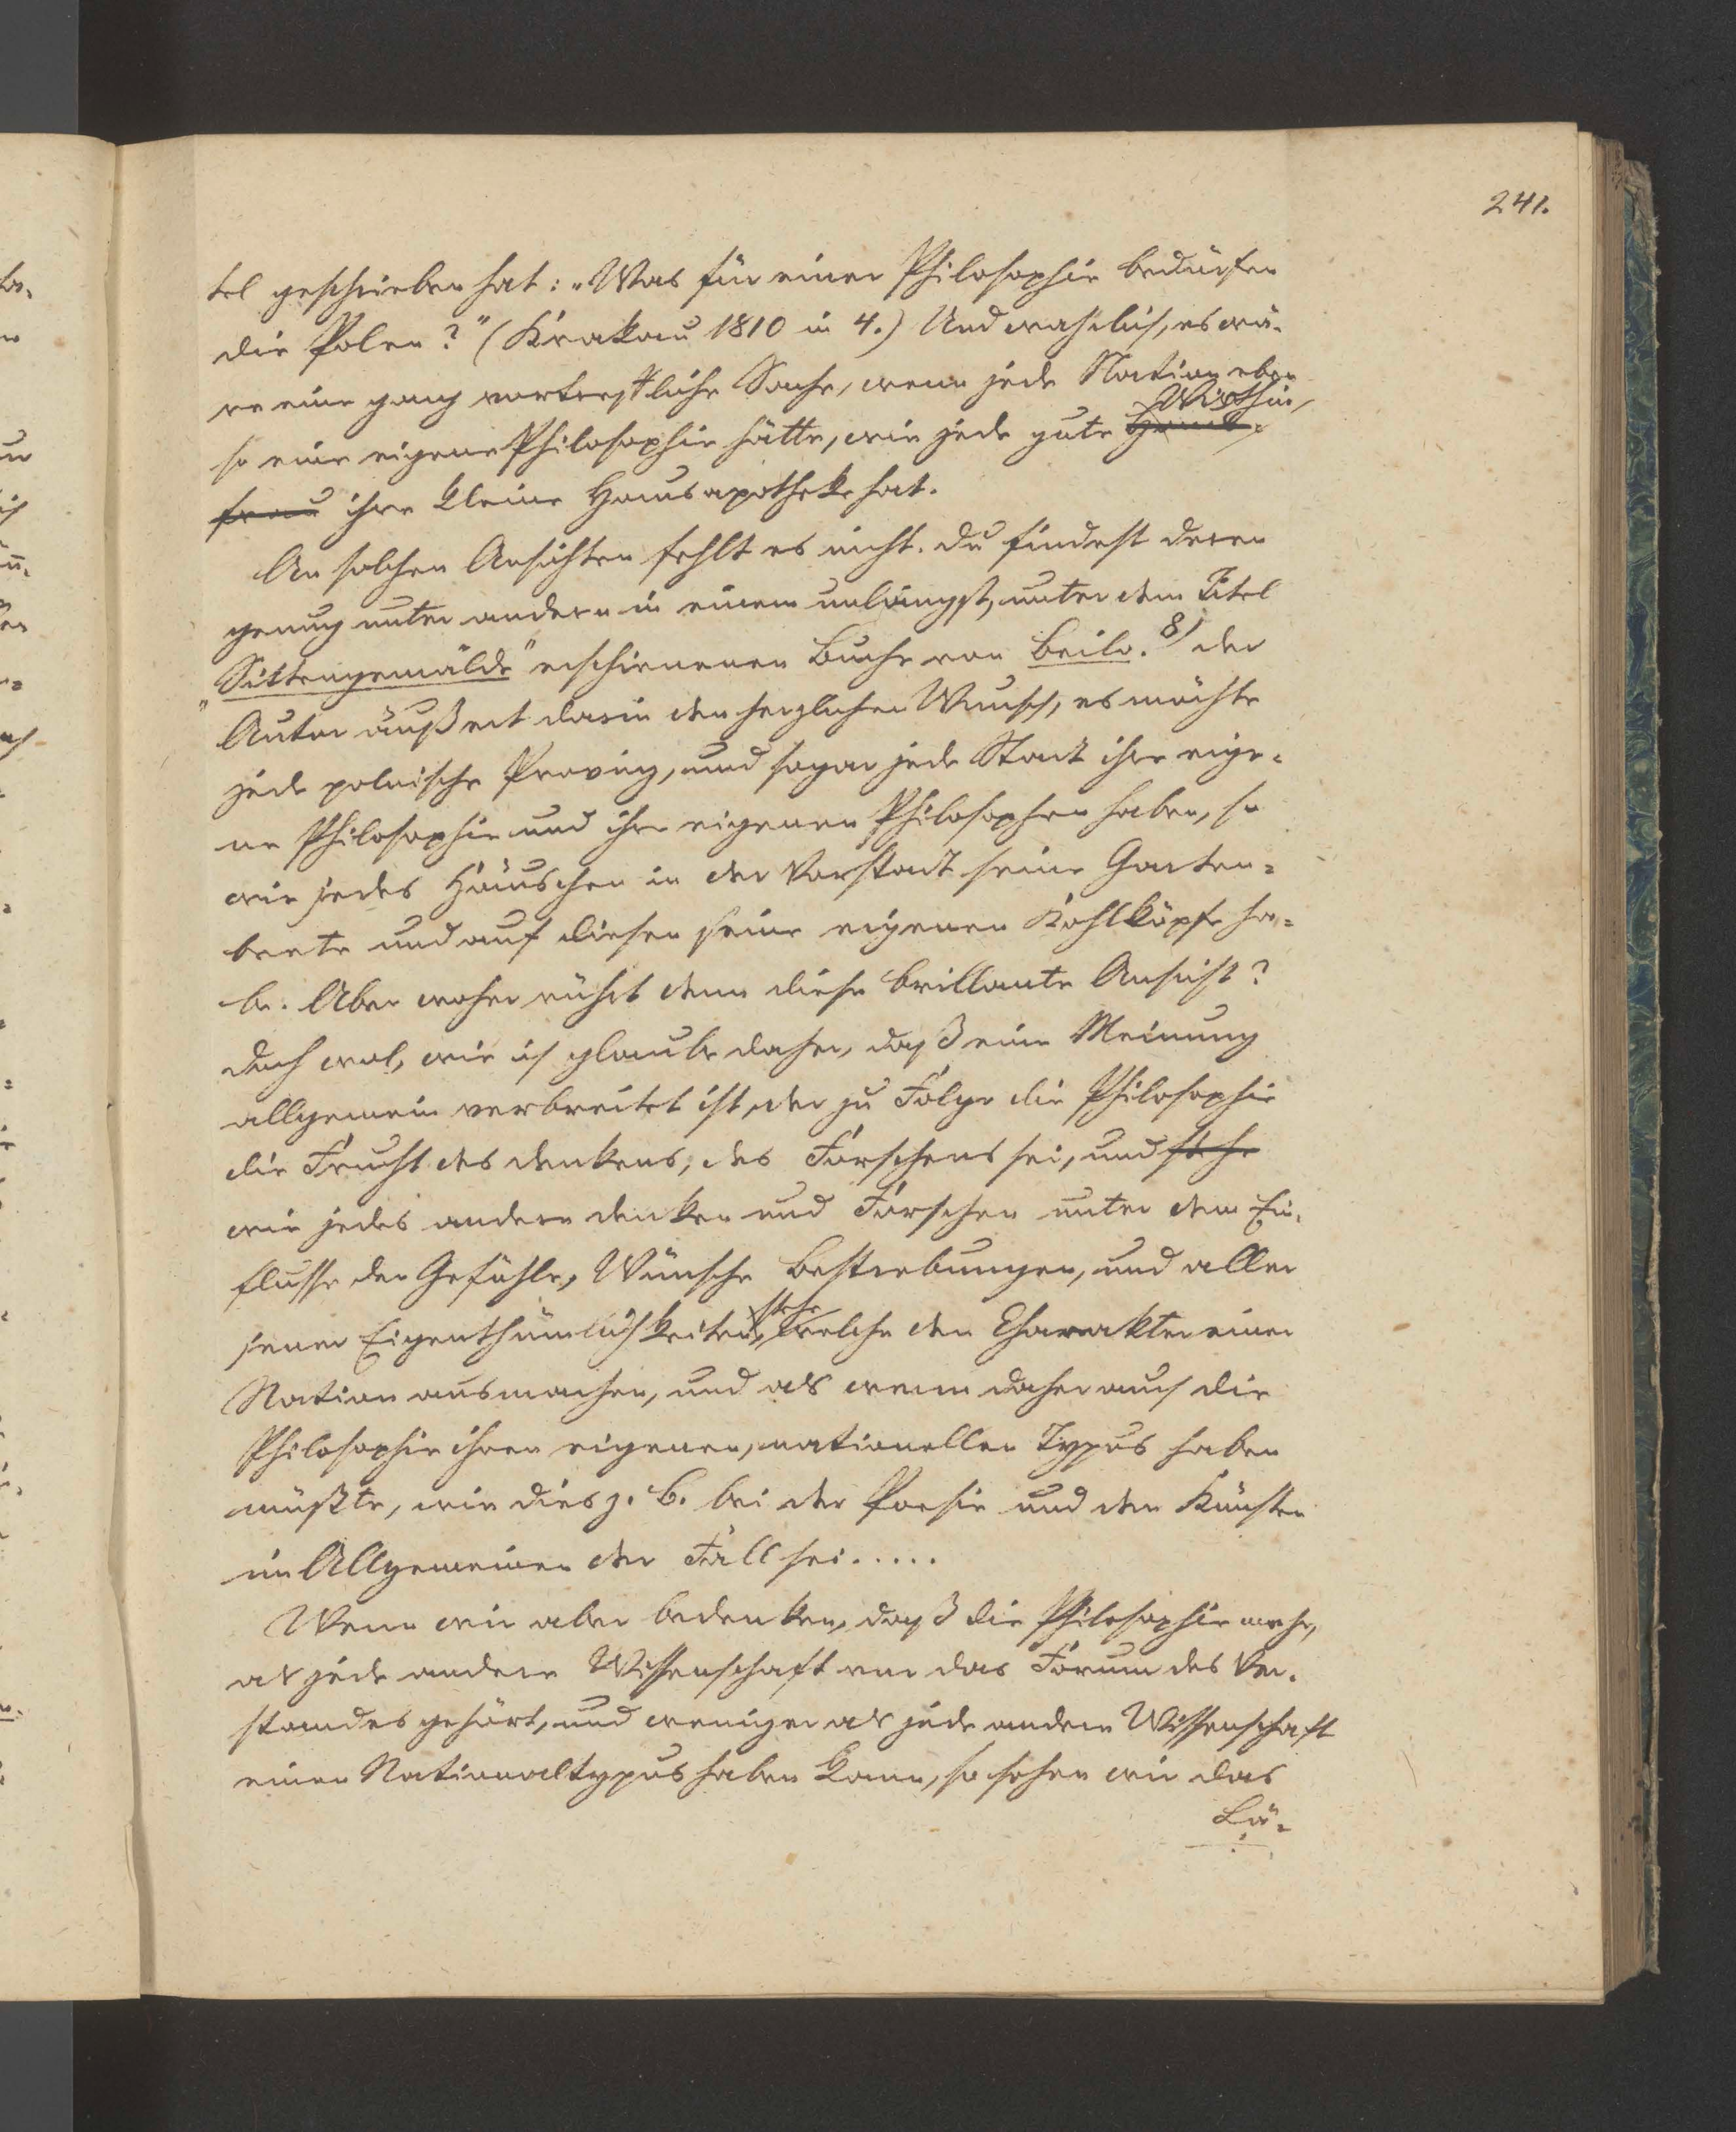 241.
tel geschrieben hat: „Was für einer Philosophie bedürfen
die Polen?" (Krakau 1810 in 4.) Und wahrlich, es wä-
re eine ganz vortreffliche Sache, wenn jede Nation eben
so eine eigene Philosophie hätte, wie jede gute Haus- Wirthin,
frau ihre kleine Hausapotheke hat.
An solchen Ansichten fehlt es nicht. Du findest deren
genug unter andern in einem unlängst, unter dem Titel
„Sittengemälde" erschienenen Buche von Beila. 8) Der
Autor äußert darin den herzlichen Wunsch, es möchte
jede polnische Provinz, und sogar jede Stadt ihre eige-
ne Philosophie und ihre eigenen Philosophen haben, so
wie jedes Häuschen in der Vorstadt seine Garten-
beete und auf diesen seine eigenen Kohlköpfe ha-
be. Aber woher rührt denn diese brillante Ansicht?
Doch wol, wie ich glaube daher, daß eine Meinung
allgemein verbreitet ist, der zu Folge die Philosophie
die Frucht des Denkens, des Forschens sei, und stehe
wie jedes andere Denken und Forschen unter dem Ein-
flusse der Gefühle, Wünsche Bestrebungen, und aller
jener Eigenthümlichkeiten stehe, welche den Charakter einer
Nation ausmachen, und als wenn daher auch die
Philosophie ihren eigenen, nationellen Typus haben
müßte, wie dies z. B. bei der Poesie und den Künsten
im Allgemeinen der Fall sei.....
Wenn wir aber bedenken, daß die Philosophie mehr,
als jede andere Wissenschaft vor das Forum des Ver-
standes gehört, und weniger als jede andere Wissenschaft
einen Nationaltypus haben kann, so sehen wir das
Lä-